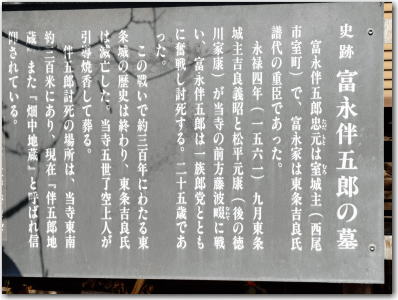 史跡 富永伴五郎の墓
富永伴五郎忠元は室城主(西尾
市室町)で、富永家は東条吉良氏
譜代の重臣であった。
永禄四年(一五六一)九月東条
城主吉良義昭と松平元康(後の徳
川家康)が当寺の前方藤波畷に戦
い、富永伴五郎は一族郎党ととも
に奮戦し討死する。二十五歳であ
った。
この戦いで約三百年にわたる東
条城の歴史は終わり、東条吉良氏
は滅亡した。当寺五世了空上人が
引導焼香して葬る。
伴五郎討死の場所は、当寺東南
約三百米にあり、現在『伴五郎地
蔵』また『畑中地蔵』と呼ばれ信
仰されている。